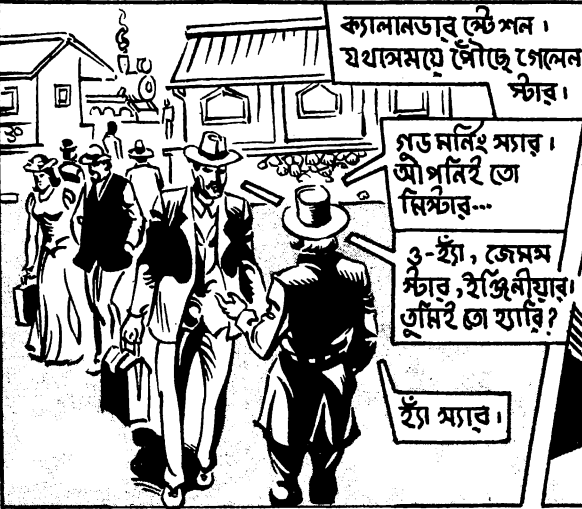 ক্যালানডার স্টেশন।
যথাসময়ে পৌঁছে গেলেন
স্টার।
গুড মর্নিং স্যার।
আপনিই তো
মিস্টার...
ও-হ্যাঁ, জেমস
স্টার, ইঞ্জিনীয়ার।
তুমিই তো হ্যারি?
হ্যাঁ স্যার।